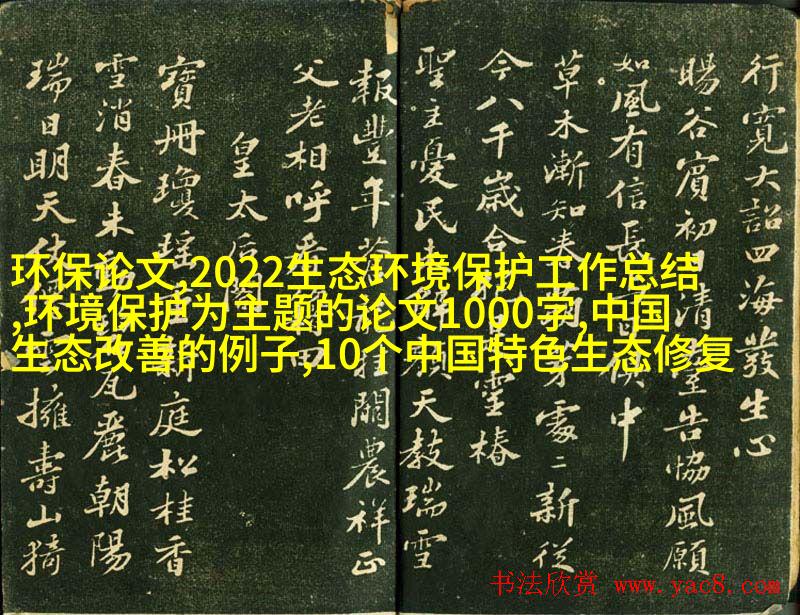 行寬大詔四海發生心
暘谷賓初日清臺告協風願
如風有信長日俱中
草木漸知春芽處〻新從
今八千歲合抱靈椿
聖主憂民未解顏天教瑞雪
報豐年蒼挂闕農祥正
父老相呼看田
皇太后閣
寶冊瓊瑤重新庭松桂香
雪消春未動瓦麗朝陽
瑞日明天仗擁壽山猗
环保论文,2022生态环境保护工作总结
,环境保护为主题的论文1000字,中国
生态改善的例子,10个中国特色生态修复
书法欣赏 www.yac8.com